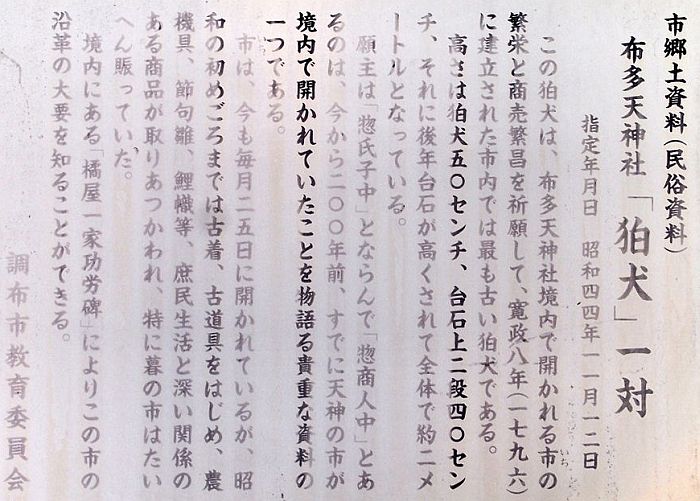 市郷土資料(民俗資料)
布多天神社「狛犬」一対
指定年月日　昭和四四年一一月一二日
この狛犬は、布多天神社境内で開かれる市の
繁栄と商売繁昌を祈願して、寛政八年(一七九六)
に建立された市内では最も古い狛犬である。
高さは狛犬五〇センチ、台石上二段四〇セン
チ、それに後年台石が高くされて全体で約二メ
ートルとなっている。
願主は「惣氏子中」とならんで「惣商人中」とあ
るのは、今から二〇〇年前、すでに天神の市が
境内で開かれていたことを物語る貴重な資料の
一つである。
市は、今も毎月二五日に開かれているが、昭
和の初めごろまでは古着、古道具をはじめ、農
機具、節句雛、鯉幟等、庶民生活と深い関係の
ある商品が取りあつかわれ、特に暮の市はたい
へん賑っていた。
境内にある「橘屋一家功労碑」によりこの市の
沿革の大要を知ることができる。
調布市教育委員会